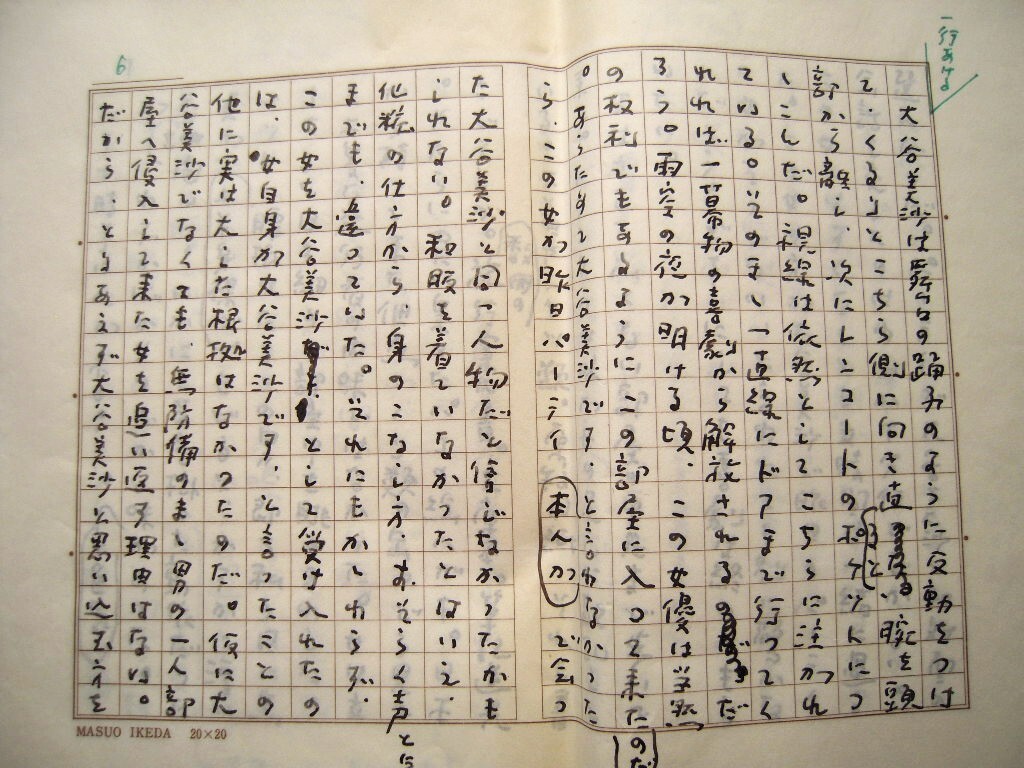 一行あける
大谷美沙は舞台の踊子のように反動をつけ
て、くるりとこちら側に向き直ると腕を頭
部から離し、次にレンコートのポケットにつ
っこんだ。視線は依然としてこちらに注がれ
ている。そのまま一直線にドアまで行ってく
れれば、一幕物の喜劇から解放されるのだ
ろう。雨空の夜が明ける頃、この女優は当然
の権利でもあるようにこの部屋に入って来た(のだ)
。あらためて大谷美沙です、と言われなかった
ら、この女が昨日パーティ本人がで会っ
6
た大谷美沙と同一人物だと信じなかったかも
しれない。和服を着ていなかったとはいえ、
化粧の仕方から身のこなし方、おそらく声
までも違っていた。それにもかかわらず、
この女を大谷美沙として受け入れたの
は、女自身が大谷美沙ですと言ったことの
他に実は大した根拠はなかったのだ。仮に大
谷美沙でなくても、無防備のまゝの男の一人部
屋へ侵入して来た女を追い返す理由はない。
だから、とりあえず大谷美沙と思い込む方を
MASUO IKEDA 20×20